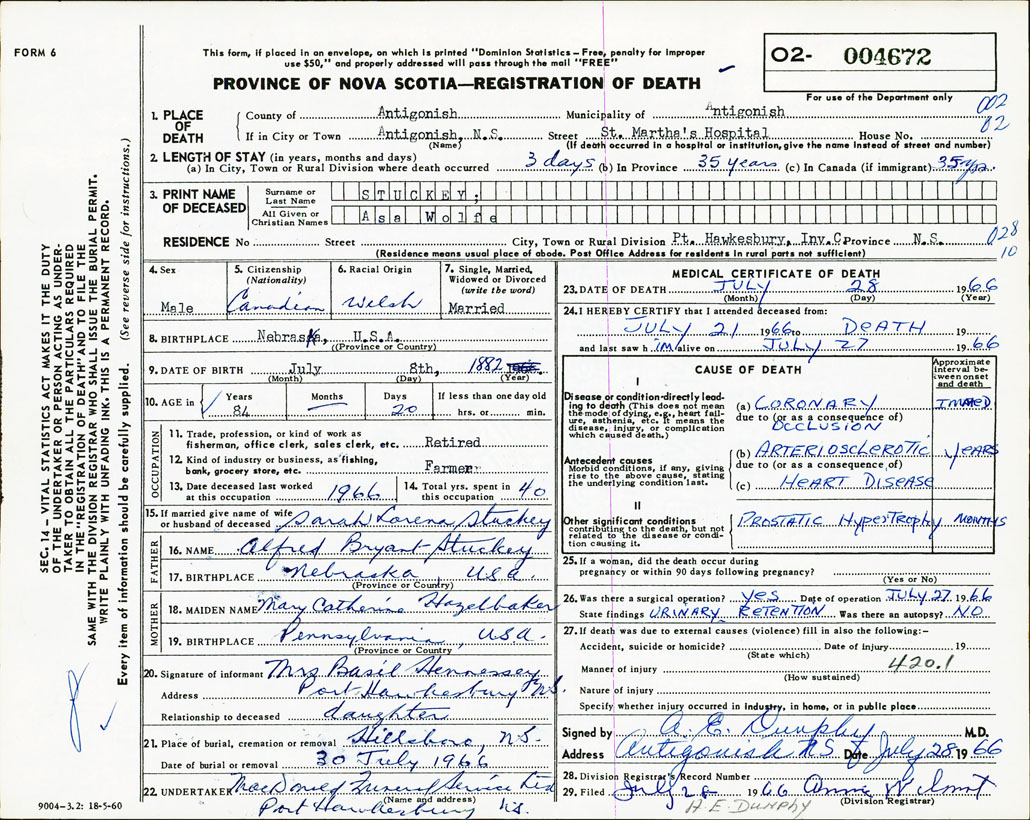 FORM 6
This form, if placed in an envelope, on which is printed "Dominion Statistics – Free, penalty for improper
use $50," and properly addressed will pass through the mail "FREE"
PROVINCE OF NOVA SCOTIA—REGISTRATION OF DEATH
O2- 004672
For use of the Department only
002
02
1. PLACE OF DEATH
County of Antigonish Municipality of Antigonish
If in City or Town Antigonish, N.S. Street St. Martha's Hospital House No.
(Name) (If death occurred in a hospital or institution, give the name instead of street and number)
2. LENGTH OF STAY (in years, months and days)
(a) In City, Town or Rural Division where death occurred 3 days (b) In Province 35 years (c) In Canada (if immigrant) 35 yrs.
3. PRINT NAME OF DECEASED
Surname or Last Name STUCKEY;
All Given or Christian Names Asa Wolfe
RESIDENCE No Street City, Town or Rural Division Pt. Hawkesbury, Inv.C. Province N.S.
028
10
(Residence means usual place of abode. Post Office Address for residents in rural parts not sufficient)
4. Sex Male
5. Citizenship (Nationality) Canadian
6. Racial Origin Welsh
7. Single, Married, Widowed or Divorced (write the word) Married
8. BIRTHPLACE Nebraska, U.S.A.
(Province or Country)
9. DATE OF BIRTH July 8th, 1882
(Month) (Day) (Year)
10. AGE in Years 84 Months — Days 20 If less than one day old hrs. or min.
OCCUPATION
11. Trade, profession, or kind of work as
fisherman, office clerk, sales clerk, etc. Retired
12. Kind of industry or business, as fishing,
bank, grocery store, etc. Farmer
13. Date deceased last worked
at this occupation 1966
14. Total yrs. spent in
this occupation 40
15. If married give name of wife
or husband of deceased Sarah Lorena Stuckey
FATHER
16. NAME Alfred Bryant Stuckey
17. BIRTHPLACE Nebraska, USA.
(Province or Country)
MOTHER
18. MAIDEN NAME Mary Catherine Hazelbaker
19. BIRTHPLACE Pennsylvania, USA.
(Province or Country)
20. Signature of informant Mrs Basil Hennessey
Address Port Hawkesbury NS.
Relationship to deceased daughter
21. Place of burial, cremation or removal Hillsboro, N.S.
Date of burial or removal 30 July 1966
22. UNDERTAKER MacDonald Funeral Service Ltd
(Name and address)
Port Hawkesbury N.S.
MEDICAL CERTIFICATE OF DEATH
23. DATE OF DEATH JULY 28 1966
(Month) (Day) (Year)
24. I HEREBY CERTIFY that I attended deceased from:
JULY 21 1966 to DEATH 19
and last saw him alive on JULY 27 1966
CAUSE OF DEATH
Approximate interval between onset and death
I
Disease or condition directly leading to death (This does not mean the mode of dying, e.g., heart failure, asthenia, etc. It means the disease, injury, or complication which caused death.)
(a) CORONARY IMMED
due to (or as a consequence of)
OCCLUSION
Antecedent causes
Morbid conditions, if any, giving rise to the above cause, stating the underlying condition last.
(b) ARTERIOSCLEROTIC years
due to (or as a consequence of)
(c) HEART DISEASE
II
Other significant conditions
contributing to the death, but not related to the disease or condition causing it.
PROSTATIC HYPERTROPHY MONTHS
25. If a woman, did the death occur during
pregnancy or within 90 days following pregnancy?
(Yes or No)
26. Was there a surgical operation? yes Date of operation JULY 27 1966
State findings URINARY RETENTION Was there an autopsy? NO
27. If death was due to external causes (violence) fill in also the following:–
Accident, suicide or homicide? Date of injury 19
(State which)
Manner of injury 420.1
(How sustained)
Nature of injury
Specify whether injury occurred in industry, in home, or in public place
Signed by A. E. Dunphy M.D.
Address Antigonish N S Date July 28 1966
28. Division Registrar's Record Number
29. Filed July 28 1966 Anna Wilmot
(Division Registrar)
A. E. DUNPHY
SEC. 14 – VITAL STATISTICS ACT MAKES IT THE DUTY
OF THE UNDERTAKER OR PERSON ACTING AS UNDERTAKER
TO OBTAIN ALL THE PARTICULARS REQUIRED
IN THE "REGISTRATION OF DEATH" AND TO FILE THE
SAME WITH THE DIVISION REGISTRAR WHO SHALL ISSUE THE BURIAL PERMIT.
WRITE PLAINLY WITH UNFADING INK. THIS IS A PERMANENT RECORD.
Every item of information should be carefully supplied. (See reverse side for instructions.)
9004–3.2: 18-5-60